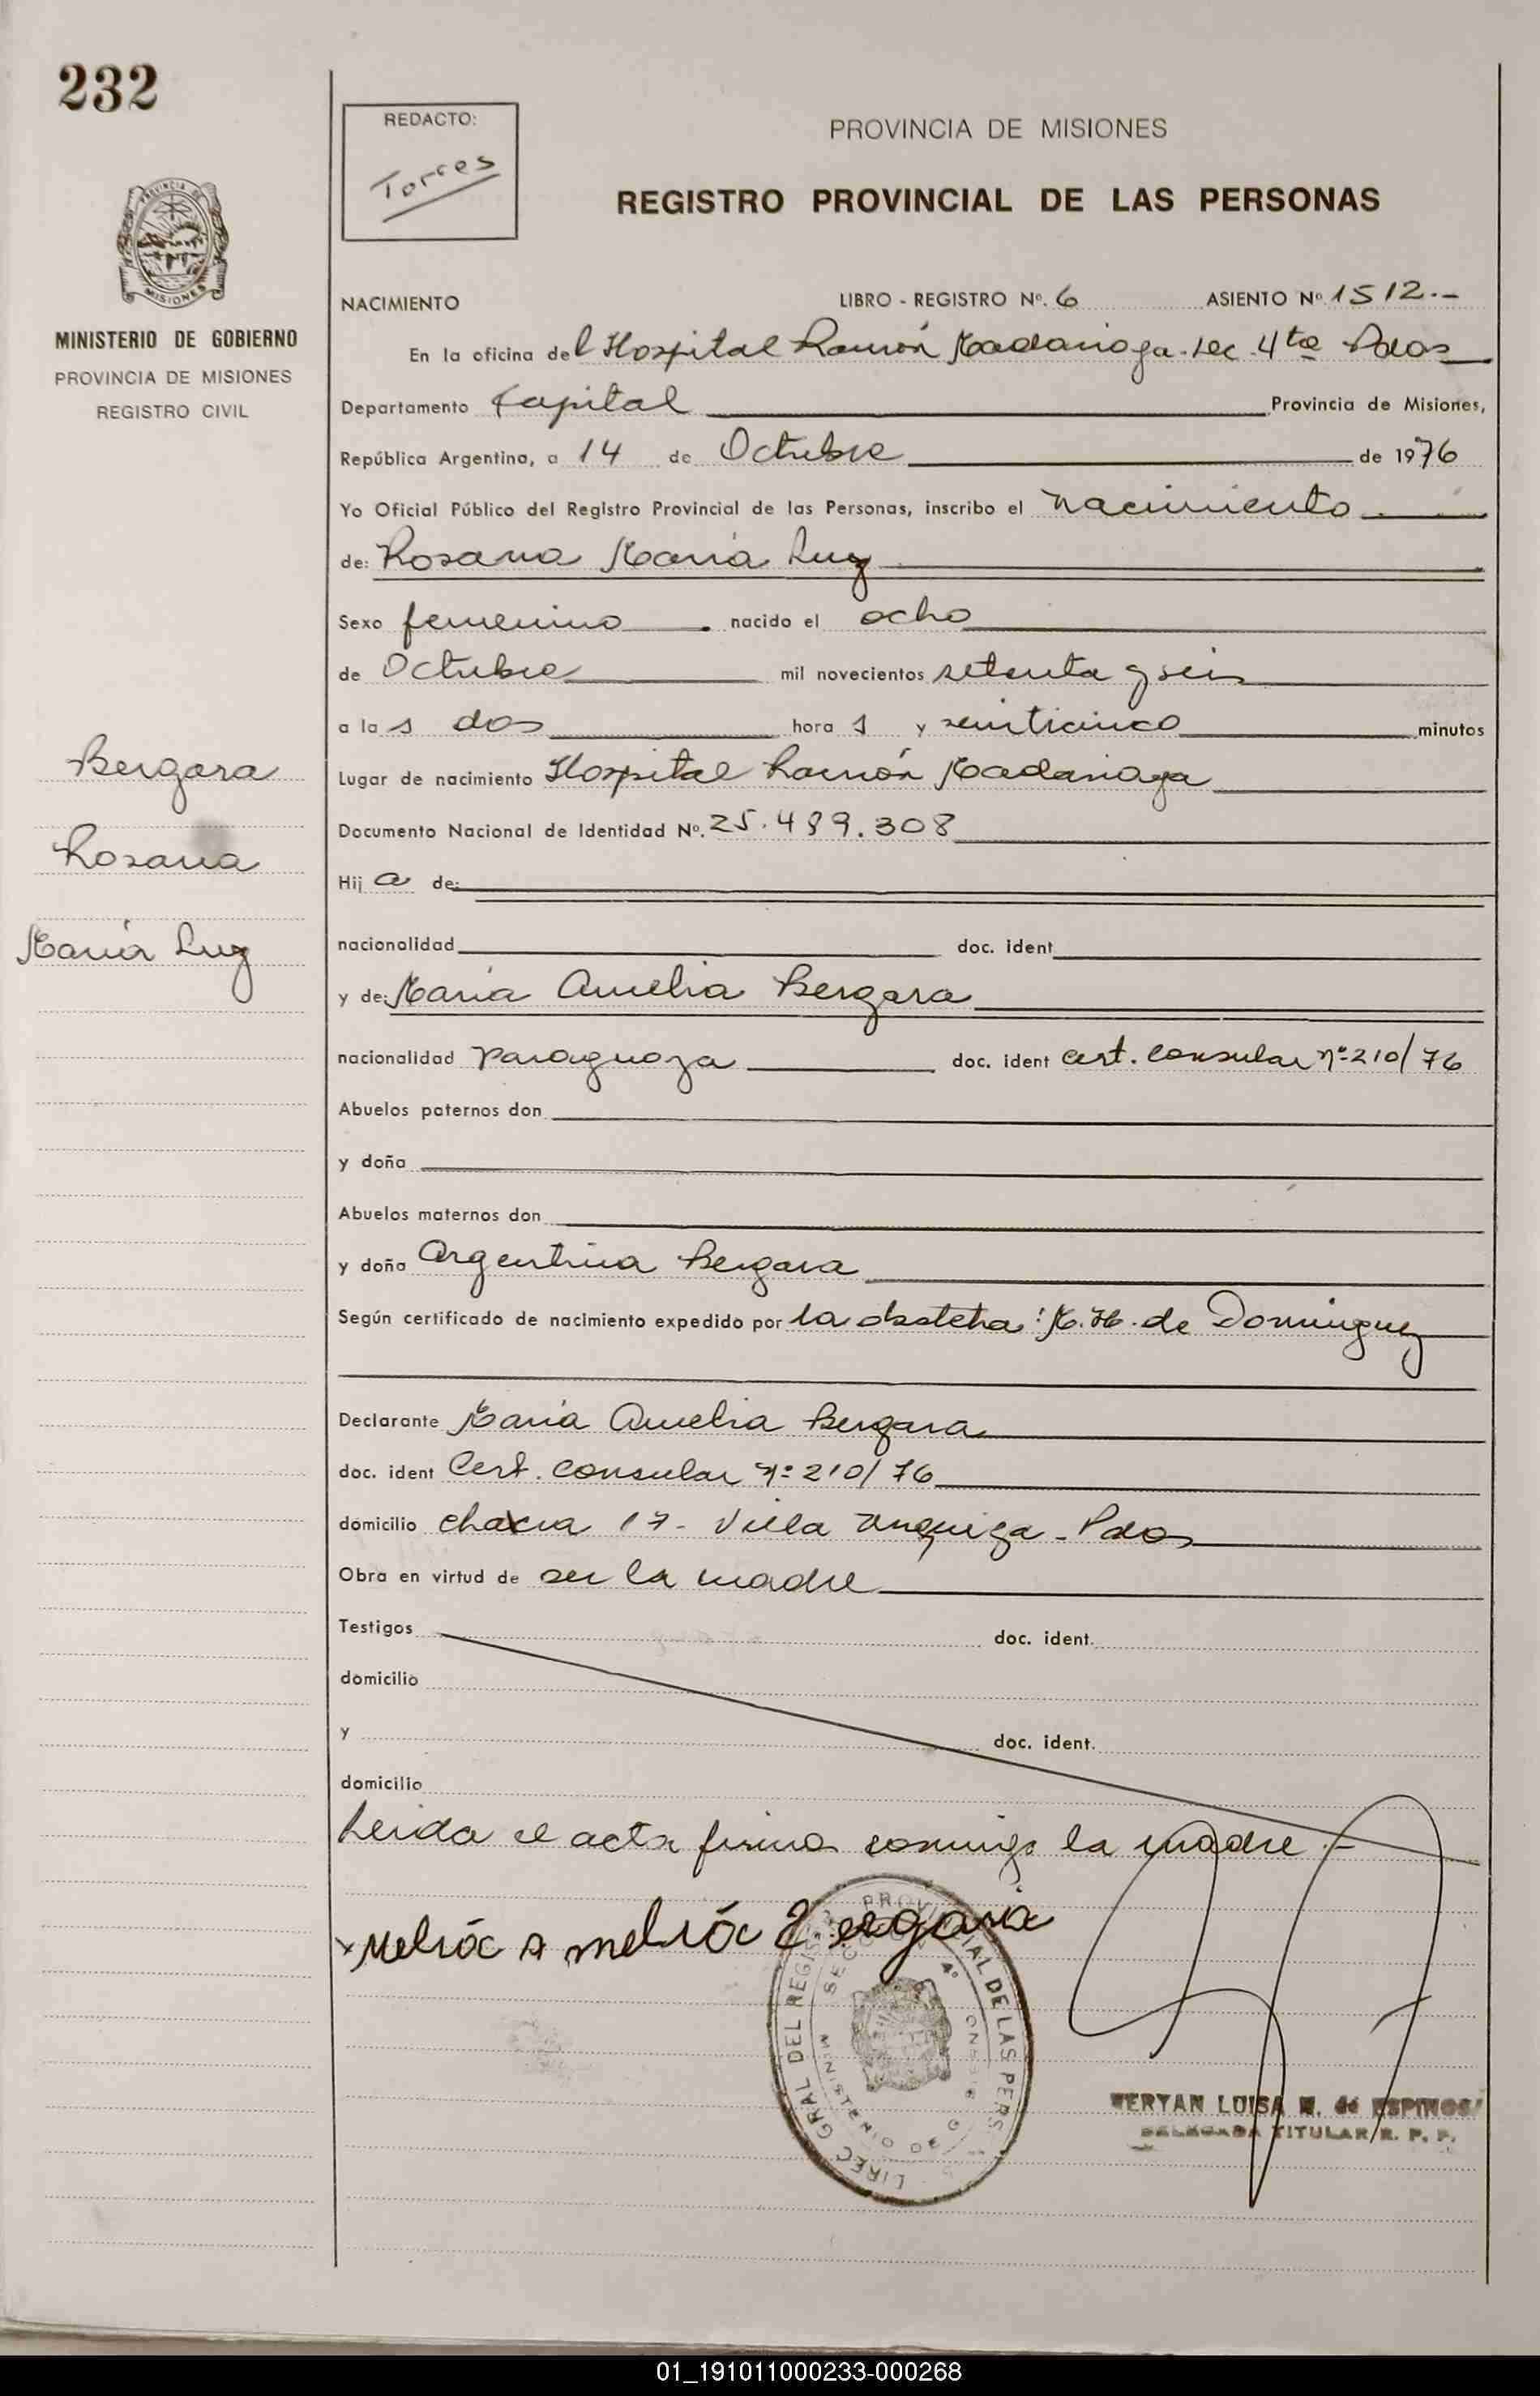 232
REDACTO:
Torres
PROVINCIA DE MISIONES
REGISTRO PROVINCIAL DE LAS PERSONAS
MISIONES
MINISTERIO DE GOBIERNO
PROVINCIA DE MISIONES
REGISTRO CIVIL
NACIMIENTO LIBRO - REGISTRO Nº. 6 ASIENTO Nº 1512.-
En la oficina del Hospital Ramón Madariaga. Sec. 4ta Pdas
Departamento Capital Provincia de Misiones,
República Argentina, a 14 de Octubre de 1976
Yo Oficial Público del Registro Provincial de las Personas, inscribo el nacimiento
de: Rosana María Luz
Sexo femenino nacido el ocho
de Octubre mil novecientos setenta y seis
a las dos horas y veinticinco minutos
Bergara
Rosana
María Luz
Lugar de nacimiento Hospital Ramón Madariaga
Documento Nacional de Identidad Nº. 25.489.308
Hija de:
nacionalidad doc. ident
y de: María Amelia Bergara
nacionalidad Paraguaya doc. ident cert. consular nº 210/76
Abuelos paternos don
y doña
Abuelos maternos don
y doña Argentina Bergara
Según certificado de nacimiento expedido por la obstetra: M.H. de Dominguez
Declarante María Amelia Bergara
doc. ident Cert. consular nº 210/76
domicilio chacra 17 - Villa Urquiza - Pdas
Obra en virtud de ser la madre
Testigos doc. ident.
domicilio
y doc. ident.
domicilio
Leida el acta firma conmigo la madre.-
DIREC GRAL DEL REGIS PROVINCIAL DE LAS PERS
MINISTERIO DE GOBIERNO
TITULAR R. P. P.
01_191011000233-000268